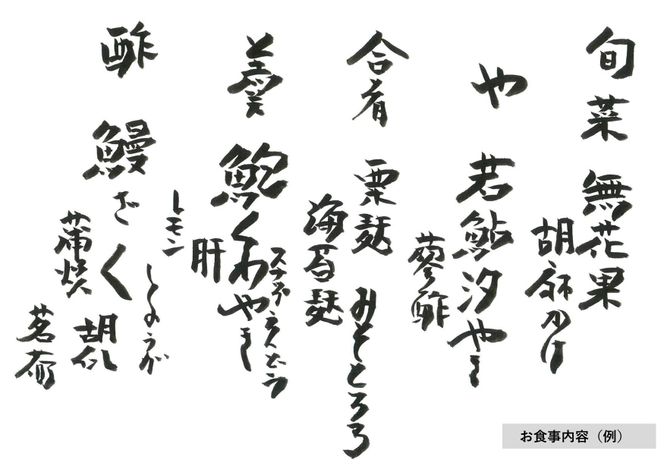 旬菜 無花果
胡麻かけ
や 若鮎汐やき
蓼酢
合肴 粟麩 みそとろろ
海苔麩
羹 鮑くわやき
スナップえんどう
肝
レモン
酢 鰻ざく
しょうが
胡瓜
蒲焼
茗荷
お食事内容（例）